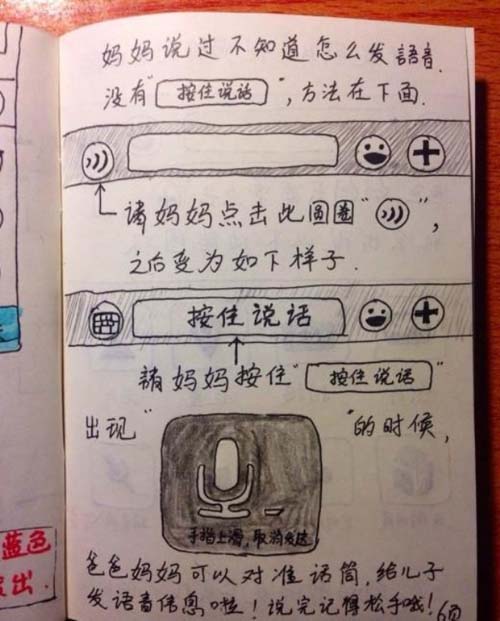 妈妈说过不知道怎么发語音.
没有“按住说话”,方法在下面.
请妈妈点击此圆圈“ ”,
之后变为如下样子.
按住说话
請妈妈按住“按住说话”
出现“ ”的时候,
手指上滑,取消发送
爸爸妈妈可以对准话筒,给儿子
发语音信息啦!说完记得松手哦!6页
蓝色
出.